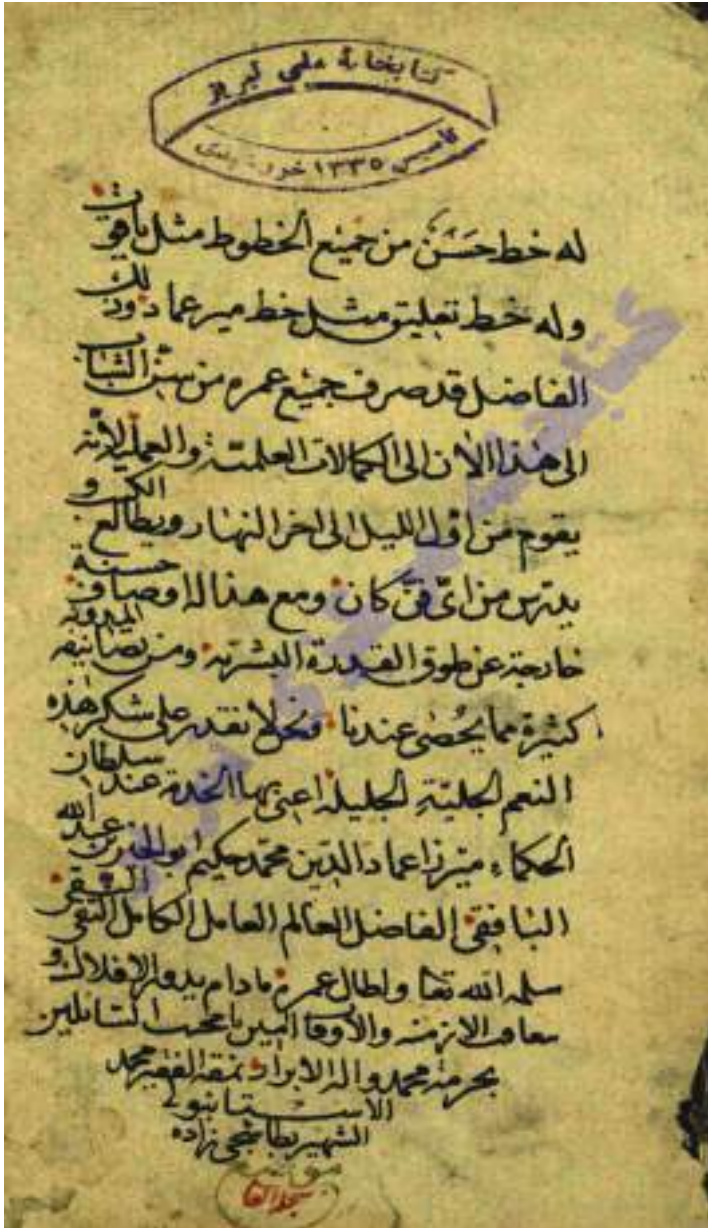 كتابخانهٔ ملی تبریز
تأسیس ۱۳۳۵ خورشیدی
له خط حَسَنٌ من جميع الخطوط مثل ياقوت
وله خط تعليق مثل خط مير عماد وذلك
الفاضل قد صرف جميع عمره من سن الشباب
الى هذا الآن الى الكمالات العلمية والعملية لأنه
يقوم من اول الليل الى اخر النهار ويطالع الكتب و
يدرس من اىّ فنّ كان ومع هذا له اوصاف حسنة
خارجة عن طوق القدرة البشرية ومن تصانيفه المدونة
كثيرة مما يحُصى عندنا ونحن لا نقدر على شكر هذه
النعم الجليّة الجليلة اعنى بها الخدمة عند سلطان
الحكماء ميرزا عماد الدين محمد حكيم ابو الخير بن عبد الله
البافقى الفاضل العالم العامل الكامل التقى النقى
سلمه الله تعا واطال عمره مادام يدور الافلاك و
الازمنة والأوقا امين يا مجيب السائلين
بحرمة محمد واله الابرار نمقه الفقير محمد
الاستانبولى
الشهير زاده